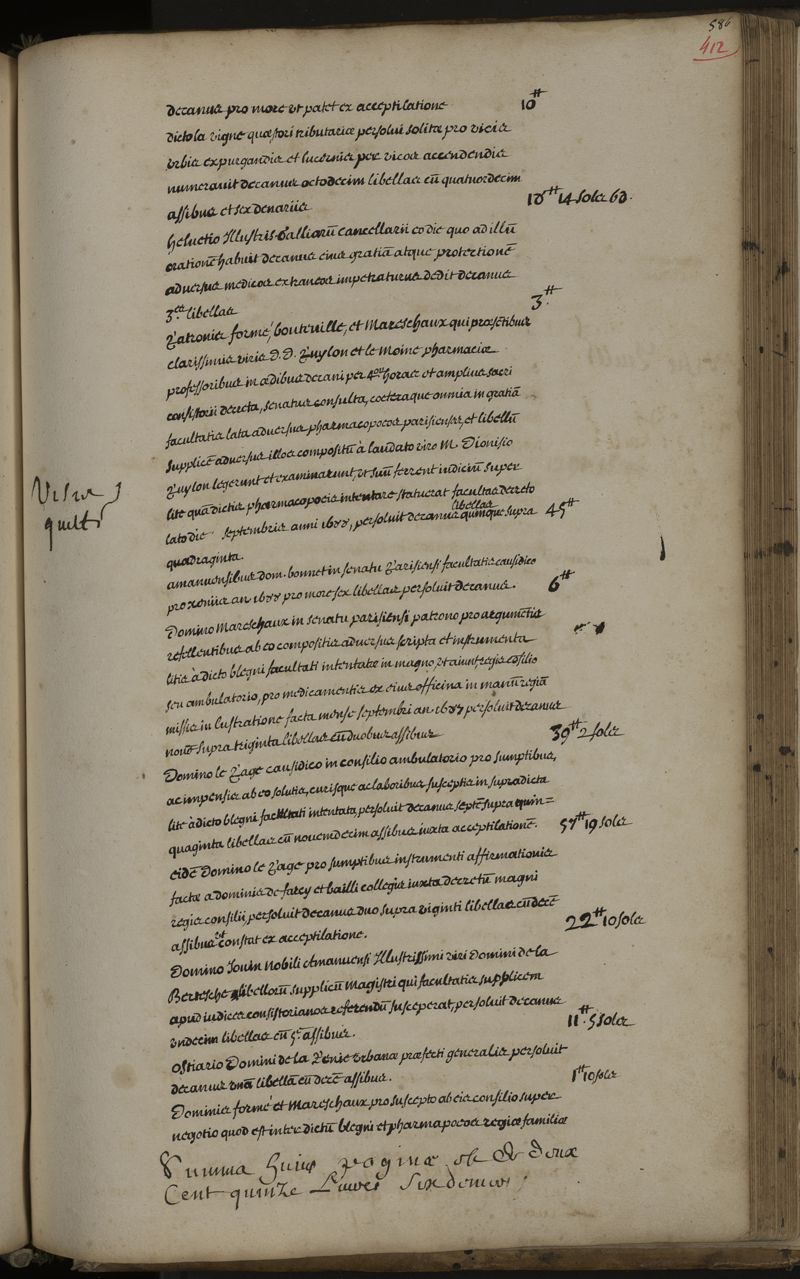 586
412
decanus pro more ut patet ex acceptilatione 10tt
dicto la vigne quæstori tributariæ persolui solita pro viciis
urbis expurgandis et lucernis per vicos accendendis
numerauit decanus octodecim libellas cū quatuordecim
assibus et sex denariis 18tt 14 sols 6d.
heluetio Illustris. Galliarū cancellarii eo die quo ad illū
orationē habuit decanus eius gratiā atque protectionē
aduersus medicos extraneos impetraturus dedit decanus
3es libellas 3tt.
Patronis formé, bouteuille, et Mareschaux qui præsentibus
clarissimis viris D.D. Puylon et le Moine pharmaciæ
professoribus in ædibus decani per 4or horas et amplius sacri
consistorii decreta, senatus consulta, cœteraque omnia in gratiā
facultatis lata aduersus pharmacopoeos parisienses, et libellū
supplicē aduersus illos compositū à laudato viro M. Dionisio
Puylon legerunt et examinarunt, ut suū ferrent iudiciū super
lite quā dictis pharmacopoeis intentare statuerat facultas decreto
lato die septembris anni 1688, persoluit decanus libellas quinque supra 45tt
quadraginta.
amanuensibus dom. bonnet in senatu Parisiensi facultatis causidico
pro xeniis an 1688 pro more sex libellas persoluit decanus. 6tt
Domino Mareschaux in senatu parisiensi patrono pro argumētis
refellentibus ab eo compositis aduersus scripta et instrumenta
litis à dicto blegni facultati intentatæ in magno, ut aiunt, regis cōsilio
seu ambulatorio, pro medicamentis ex eius officina in manū regiā
missis in lustratione facta mense septembri an 1687 persoluit decanus
nouē supra triginta libellas cū duobus assibus 39tt 2 sols
Domino le Page causidico in consilio ambulatorio pro sumptibus,
ac impensis ab eo solutis, curisque ac laboribus susceptis in supradicta
lite à dicto blegni facultati intentata, persoluit decanus septē supra quin=
quaginta libellas cū nouemdecim assibus iuxta acceptilationē. 57tt 19 sols
eidē Domino le Page pro sumptibus instrumenti affirmationis
factæ a dominis de farcy et bailli collegis iuxta decretū magni
regis consilii persoluit decanus duo supra viginti libellas cū decē
assibus ut constat ex acceptilatione. 22tt 10 sols
Domino Jouin Nobili Amanuensi Illustrissimi viri Domini de la
Berresche libellorū supplicū Magistri qui facultatis supplicem
apud iudices consistorianos referendū susceperat, persoluit decanus
undecim libellas cū 5e assibus. 11tt. 5 sols
Ostiario Domini de la Renie urbanæ præfecti generalis persoluit
decanus unā libellā cū decē assibus. 1tt 10 sols
Dominis formé et Mareschaux pro suscepto ab eis consilio super
negotio quod est inter dictū blegni et pharmapoeos regiæ familiæ
Summa huius paginæ est de deux
Cent quinze Liures six deniers